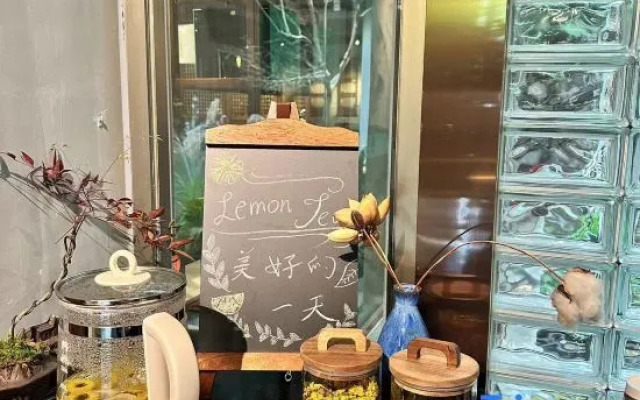 Lemon Tea
美好的
一天